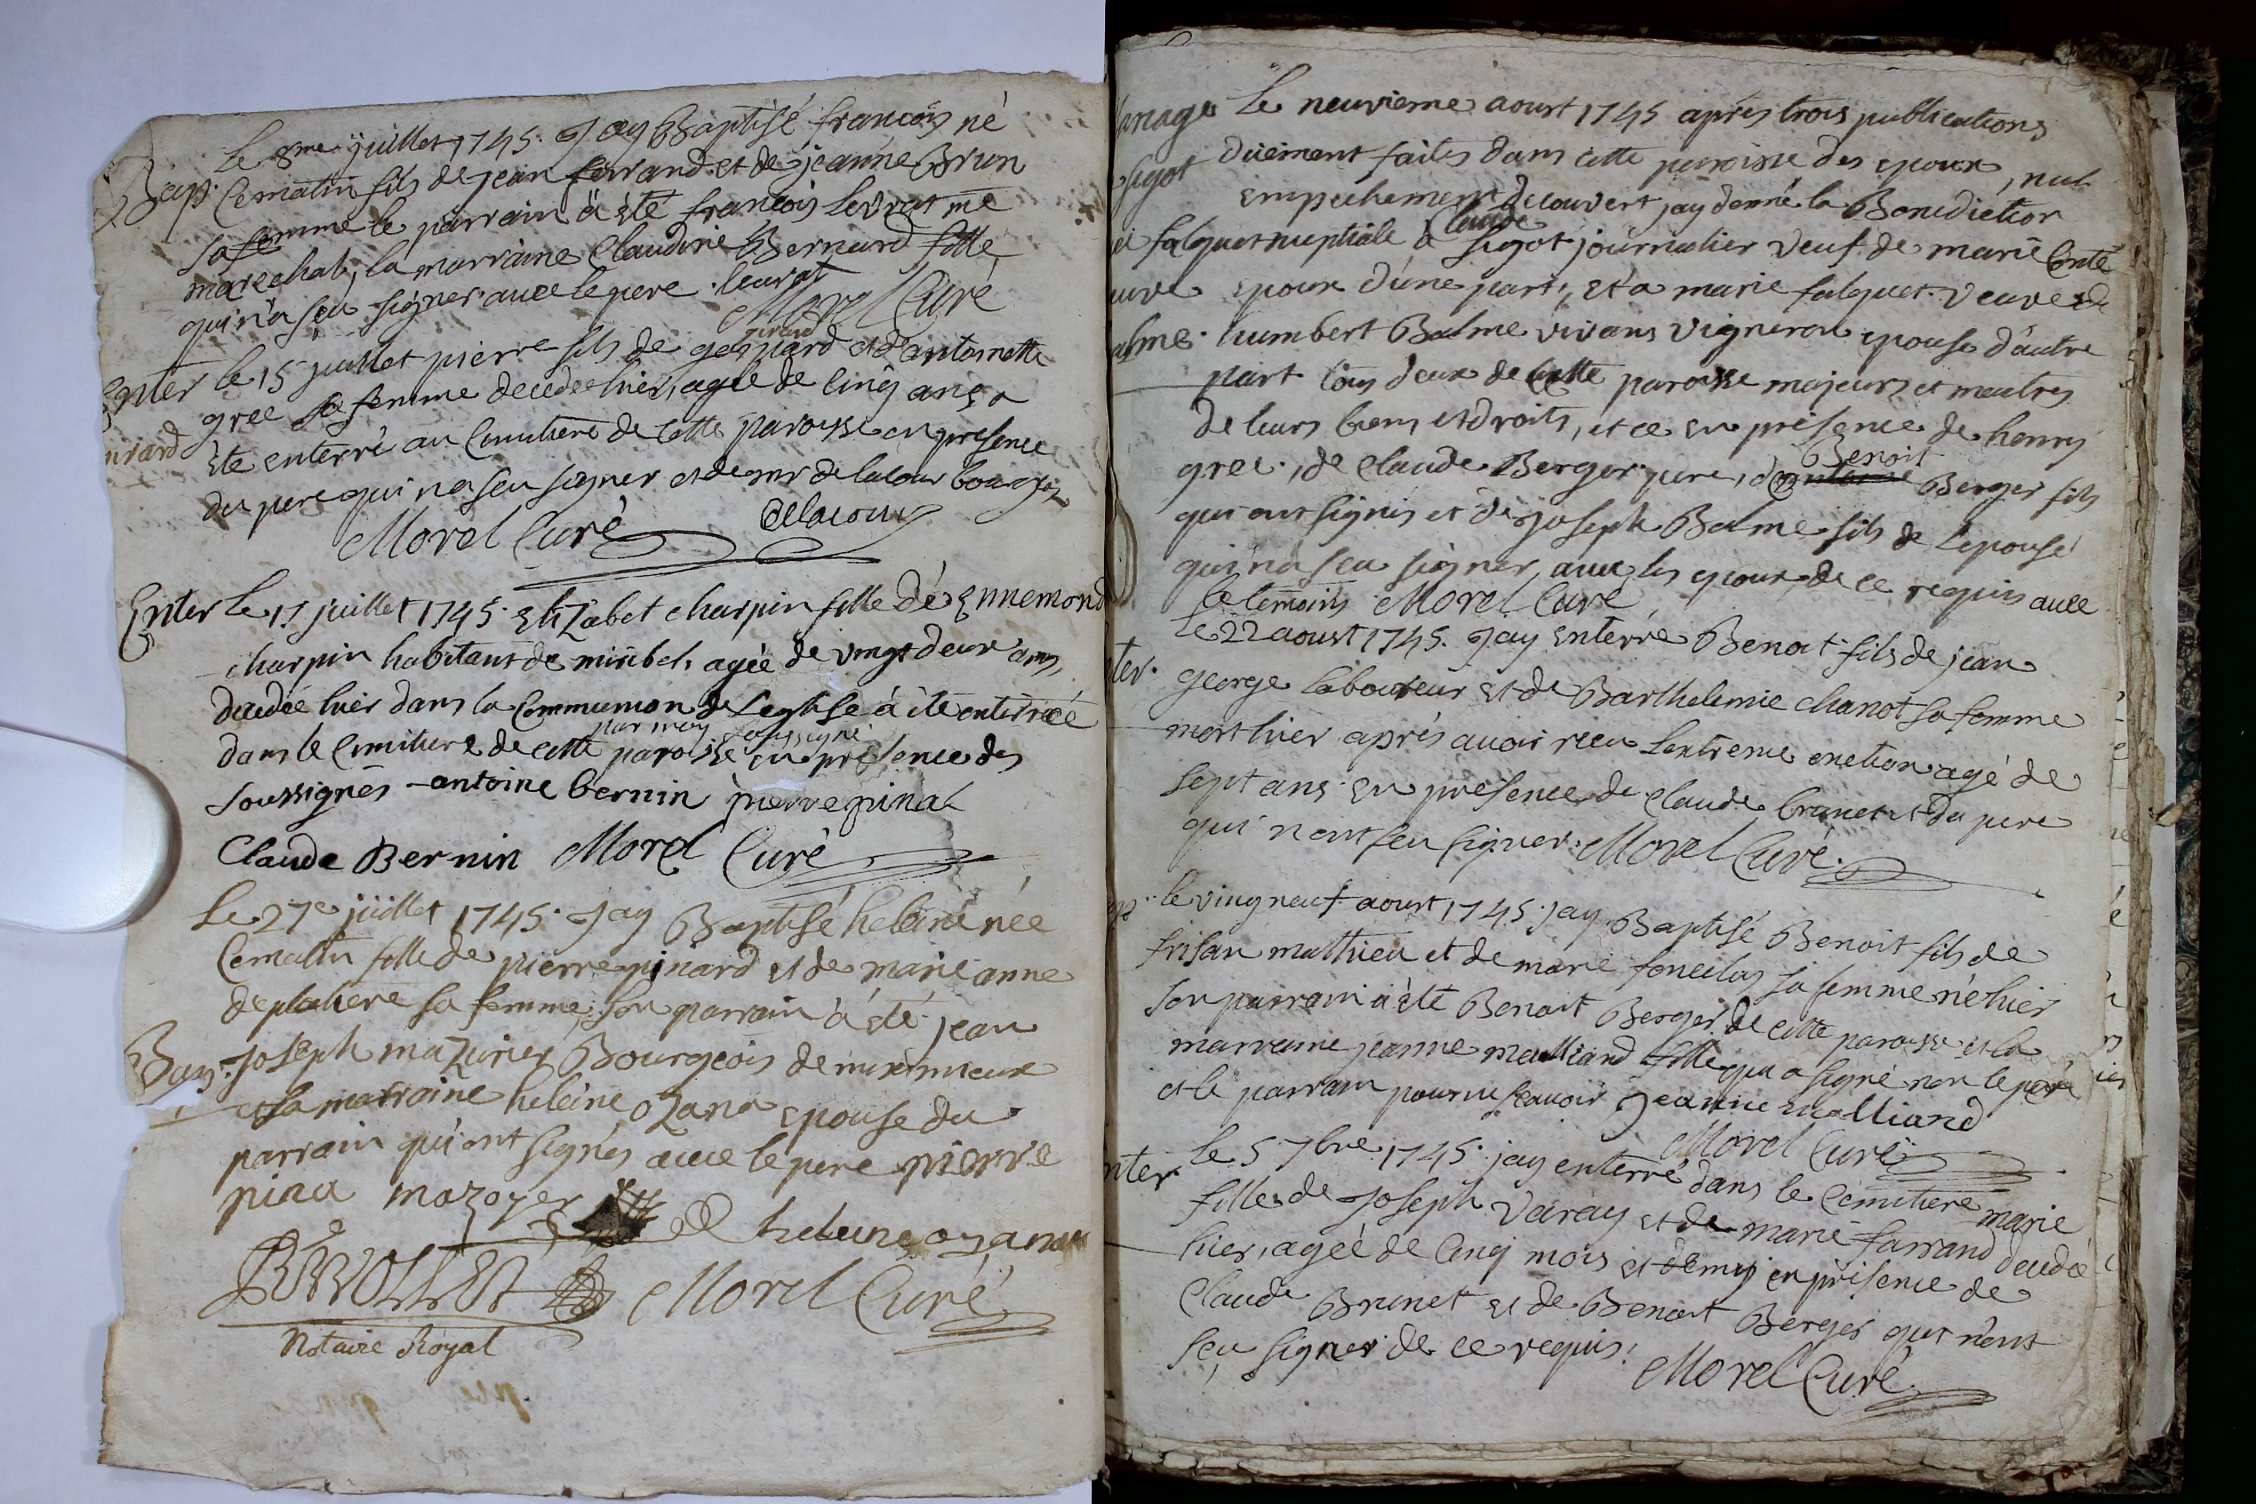 Le 8me juillet 1745. Jay Baptisé françois né
Bap. Cematin fils de jean ferrand et de jeanne Brun
sa femme le parrain à été françois Levrat me
marechal, la marraine Claudine Bernard fille
qui n'a seu signer avec le pere. levrat
Morel Curé
girard
Enter le 15 juillet pierre fils de gaspard et d'antoinette
gree sa femme decedé hier, agée de Cinq ans a
irard été enterré au Cimitiere de cette paroisse en presence
du pere qui na seu signer et de mr delacour bourgois
Morel Curé delacour
Enter Le 17 juillet 1745. Elizabet charpin fille de Ennemond
charpin habitant de miribel, agée de vingt deux ans,
decedée hier dans la Communion de Leglise à été enterrée
par moy soussigné
dans le Cimitiere de cette paroisse en presence des
soussignés antoine bernin pierre pinal
Claude Bernin Morel Curé
Le 27e juillet 1745. Jay Baptisé heleine née
Cematin fille de pierre pinard et de marie anne
deplatiere sa femme, son parrain à été jean
Bap. Joseph mazurier Bourgeois de miximieux
et sa marraine heleine ozana epouse du
parrain qui ont signés avec le pere pierre
pina mazoyer heleine ozana
Morel Curé
Notaire Royal
ariage Le neuvieme aoust 1745 après trois publications
sigot düement faites dans cette paroisse des epoux, nul
empechement decouvert jay donné la Benediction
Claude
falquet nuptiale a sigot journalier veuf de marie Conte
uve epoux d'une part, et a marie falquet veuve de
alme. humbert Balme vivant vigneron epouse d'autre
part tous deux de cette paroisse majeurs et maitres
de leurs biens et droits, et ce en présence de henry
Benoit
gree, de Claude Berger pere, d'antoine Berger fils
qui ont signés et de joseph Balme fils de L'epouse
qui na seu signer, avec les epoux de ce requis avec
le temoins Morel Curé
ter. Le 22 aoust 1745. Jay enterré Benoit fils de jean
george laboureur et de Barthelemie chanot sa femme
mort hier après avoir receu Lextreme onction agé de
sept ans en presence de Claude brunet et du pere
qui n'ont seu signer. Morel Curé.
le vingneuf aoust 1745. jay Baptisé Benoit fils de
frisan mathieu et de marie sa femme né hier
son parrain à été Benoit Berger de cette paroisse et la
marraine jeanne malliand fille qui a signé non le pere
et le parrain pour ne scavoir Jeanne malliand
Morel Curé
nter. Le 5 7bre 1745. jay enterré dans le Cemitiere marie
fille de Joseph Varay et de marie farrand decedée
hier, agée de Cinq mois et demy en présence de
Claude Brunet et de Benoit Berger qui n'ont
seu signer de ce requis.
Morel Curé